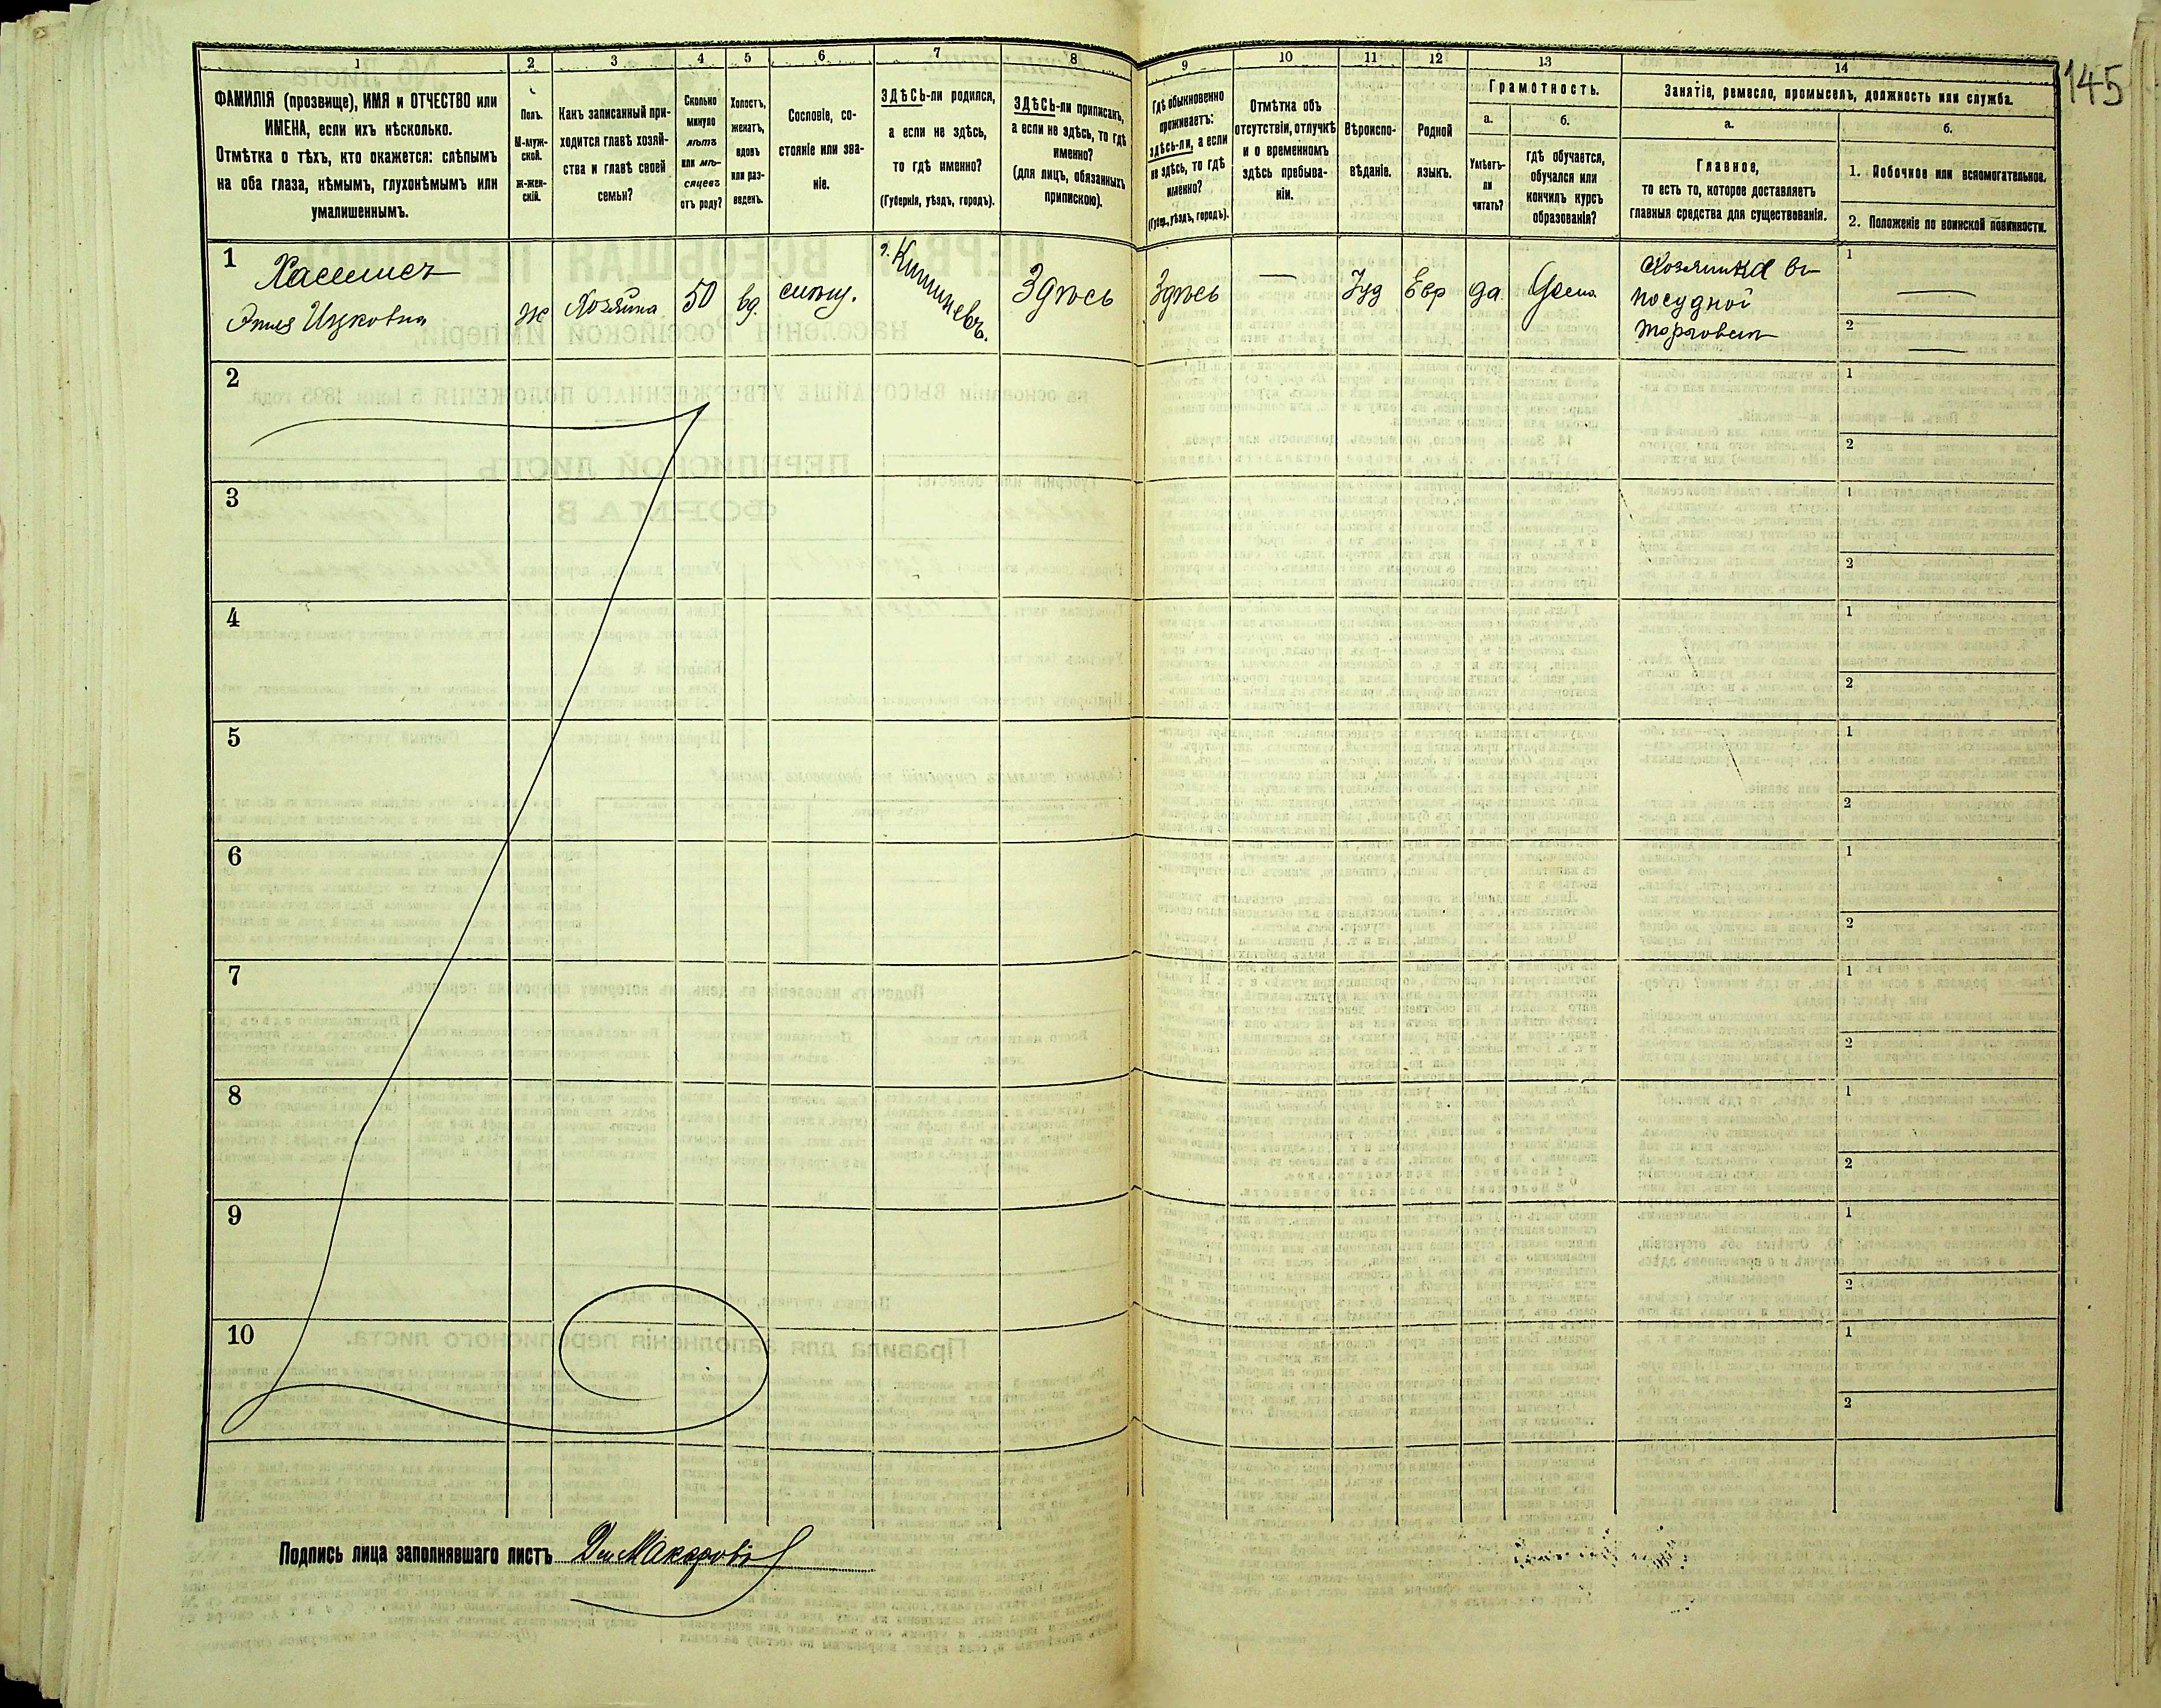 1 2 3 4 5 6 7 8 9 10 11 12 13 14
145
ФАМИЛІЯ (прозвище), ИМЯ и ОТЧЕСТВО или
ИМЕНА, если ихъ нѣсколько.
Отмѣтка о тѣхъ, кто окажется: слѣпымъ
на оба глаза, нѣмымъ, глухонѣмымъ или
умалишеннымъ.
Полъ.
М-муж-
ской.
Ж-жен-
скій.
Какъ записанный при-
ходится главѣ хозяй-
ства и главѣ своей
семьи?
Сколько
минуло
лѣтъ
или мѣ-
сяцевъ
отъ роду?
Холостъ,
женатъ,
вдовъ
или раз-
веденъ.
Сословіе, со-
стояніе или зва-
ніе.
ЗДѢСЬ-ли родился,
а если не здѣсь,
то гдѣ именно?
(Губернія, уѣздъ, городъ).
ЗДѢСЬ-ли приписанъ,
а если не здѣсь, то гдѣ
именно?
(для лицъ, обязанныхъ
припискою).
Гдѣ обыкновенно
проживаетъ:
здѣсь-ли, а если
не здѣсь, то гдѣ
именно?
(Губ., уѣздъ, городъ).
Отмѣтка объ
отсутствіи, отлучкѣ
и о временномъ
здѣсь пребыва-
ніи.
Вѣроиспо-
вѣданіе.
Родной
языкъ.
Грамотность.
а.
Умѣетъ-
ли
читать?
б.
гдѣ обучается,
обучался или
кончилъ курсъ
образованія?
Занятіе, ремесло, промыселъ, должность или служба.
а.
Главное,
то есть то, которое доставляетъ
главныя средства для существованія.
б.
1. Побочное или вспомогательное.
2. Положеніе по воинской повинности.
1
Ицковна
ж
Хозяйка
50
вд.
г. Кишиневъ.
Здѣсь
Здѣсь
—
Іуд
Евр
да
Хозяйка въ
посудной
торговли
1 —
2 —
2
1
2
3
1
2
4
1
2
5
1
2
6
1
2
7
1
2
8
1
2
9
1
2
10
1
2
Подпись лица заполнявшаго листъ Макаровъ